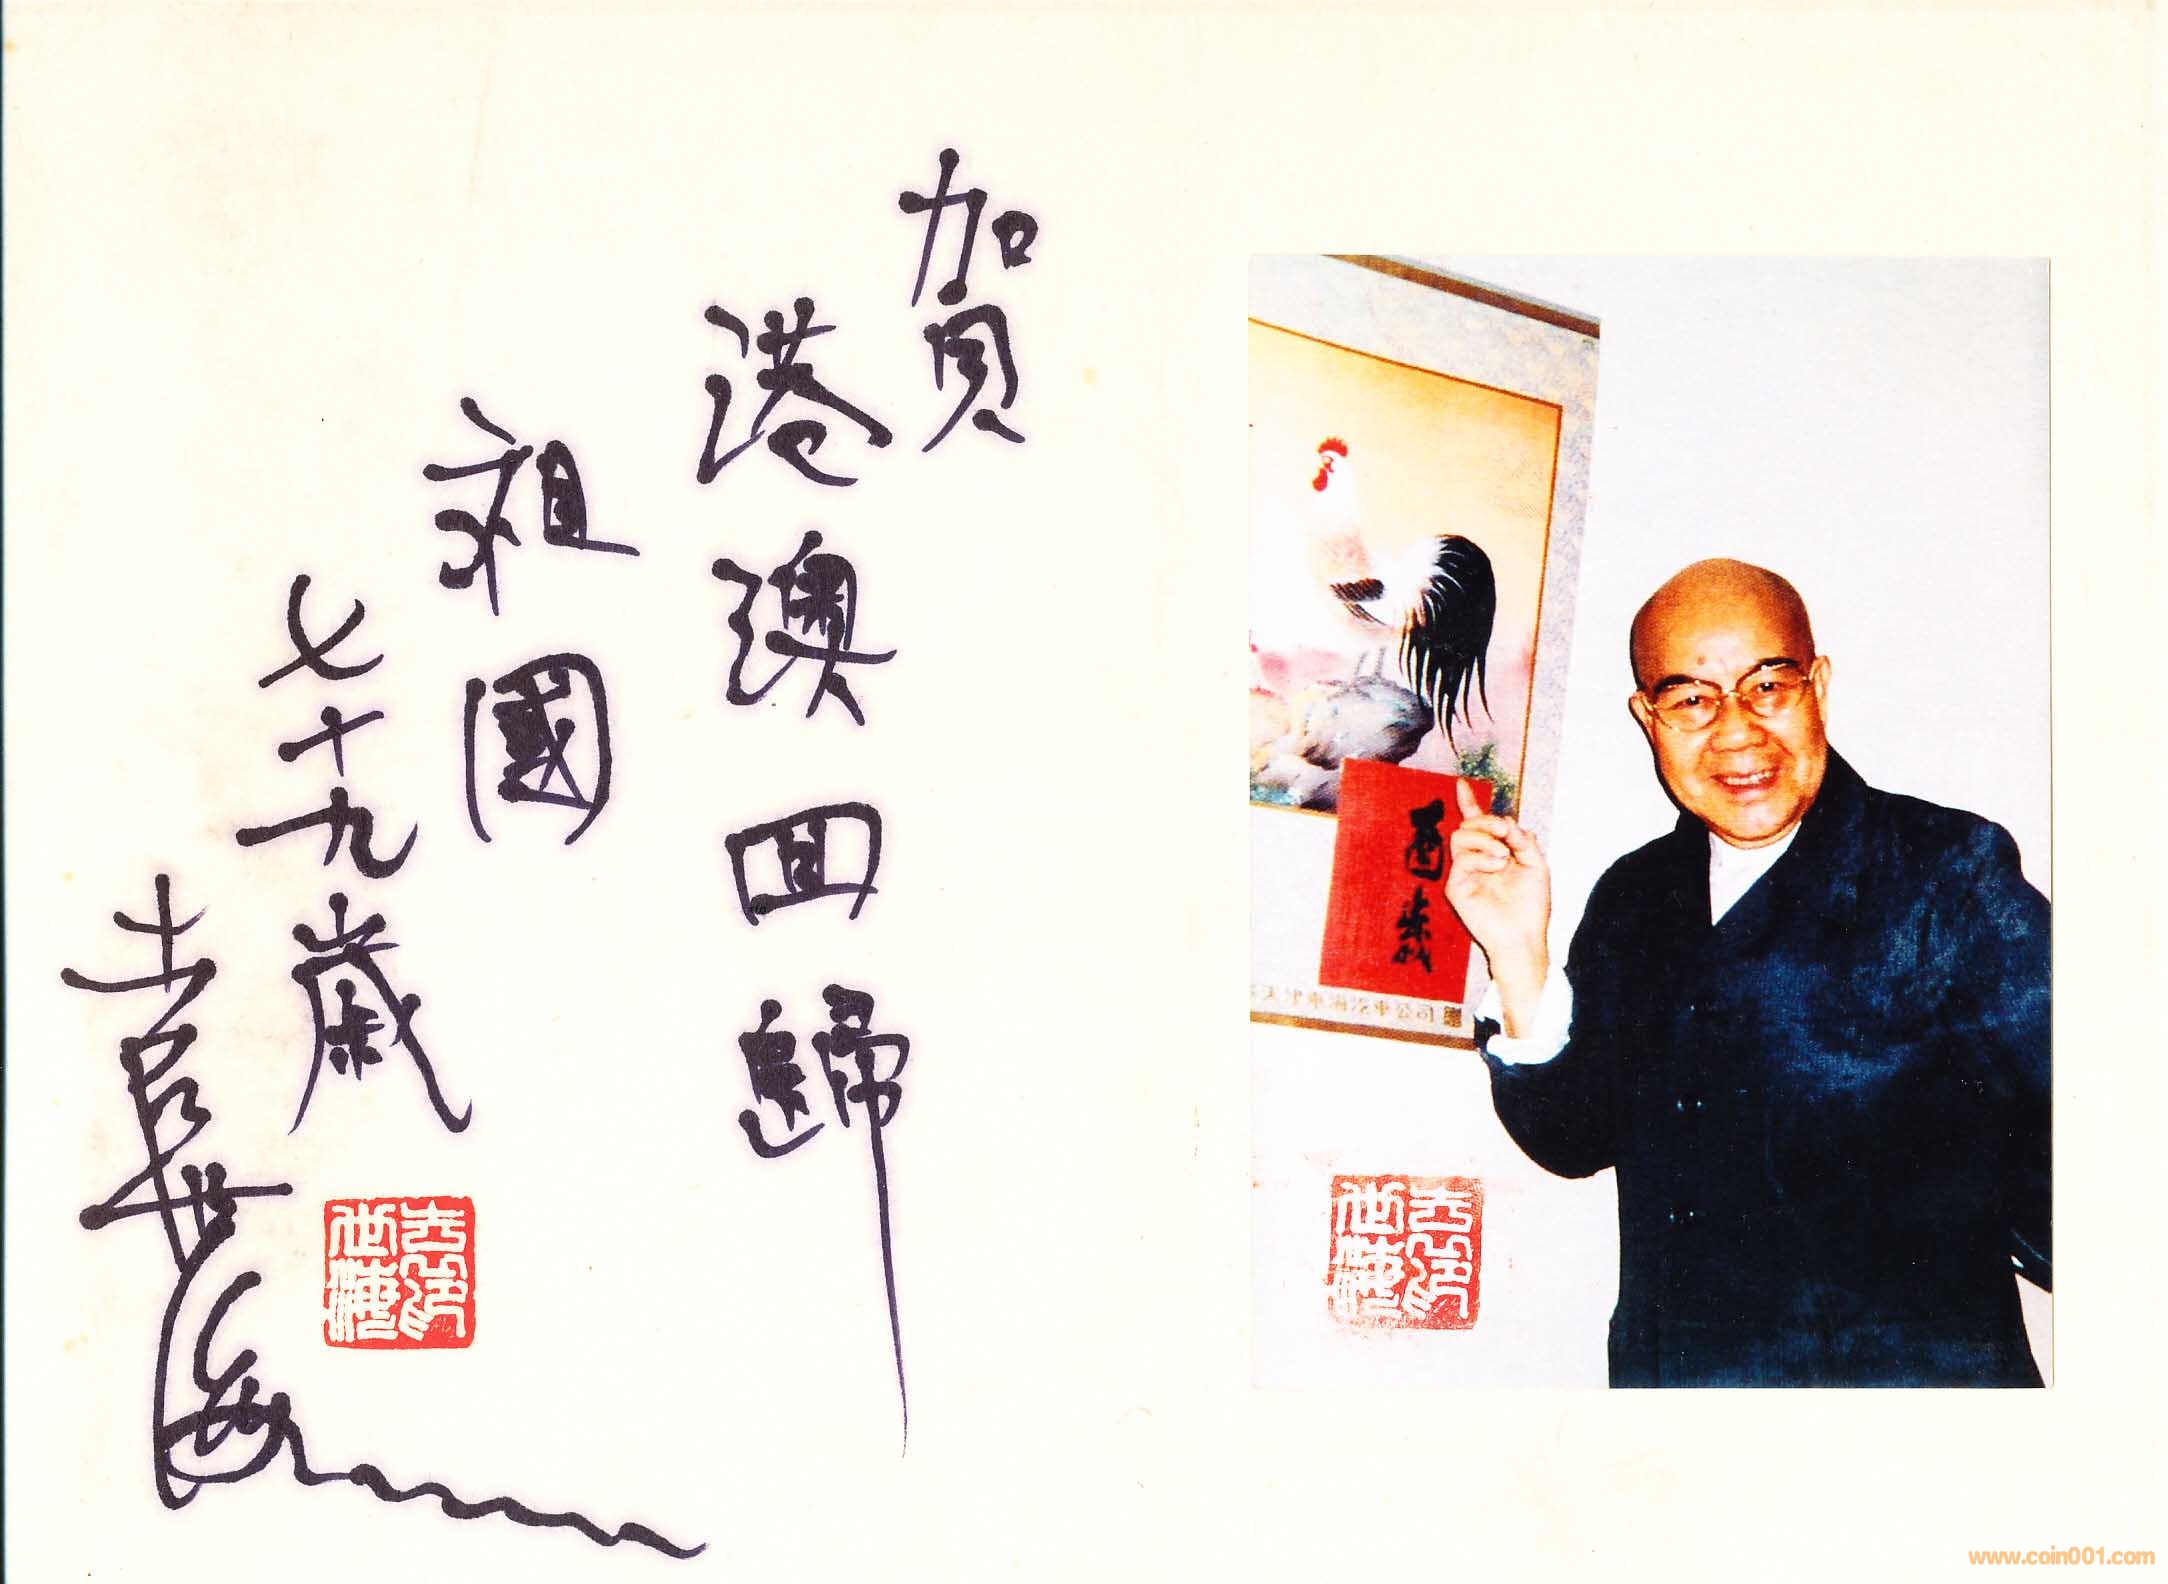 賀
港澳回歸
祖國
七十九歲
袁世海
袁印世海
天津東海汽車公司
袁印世海
www.coin001.com